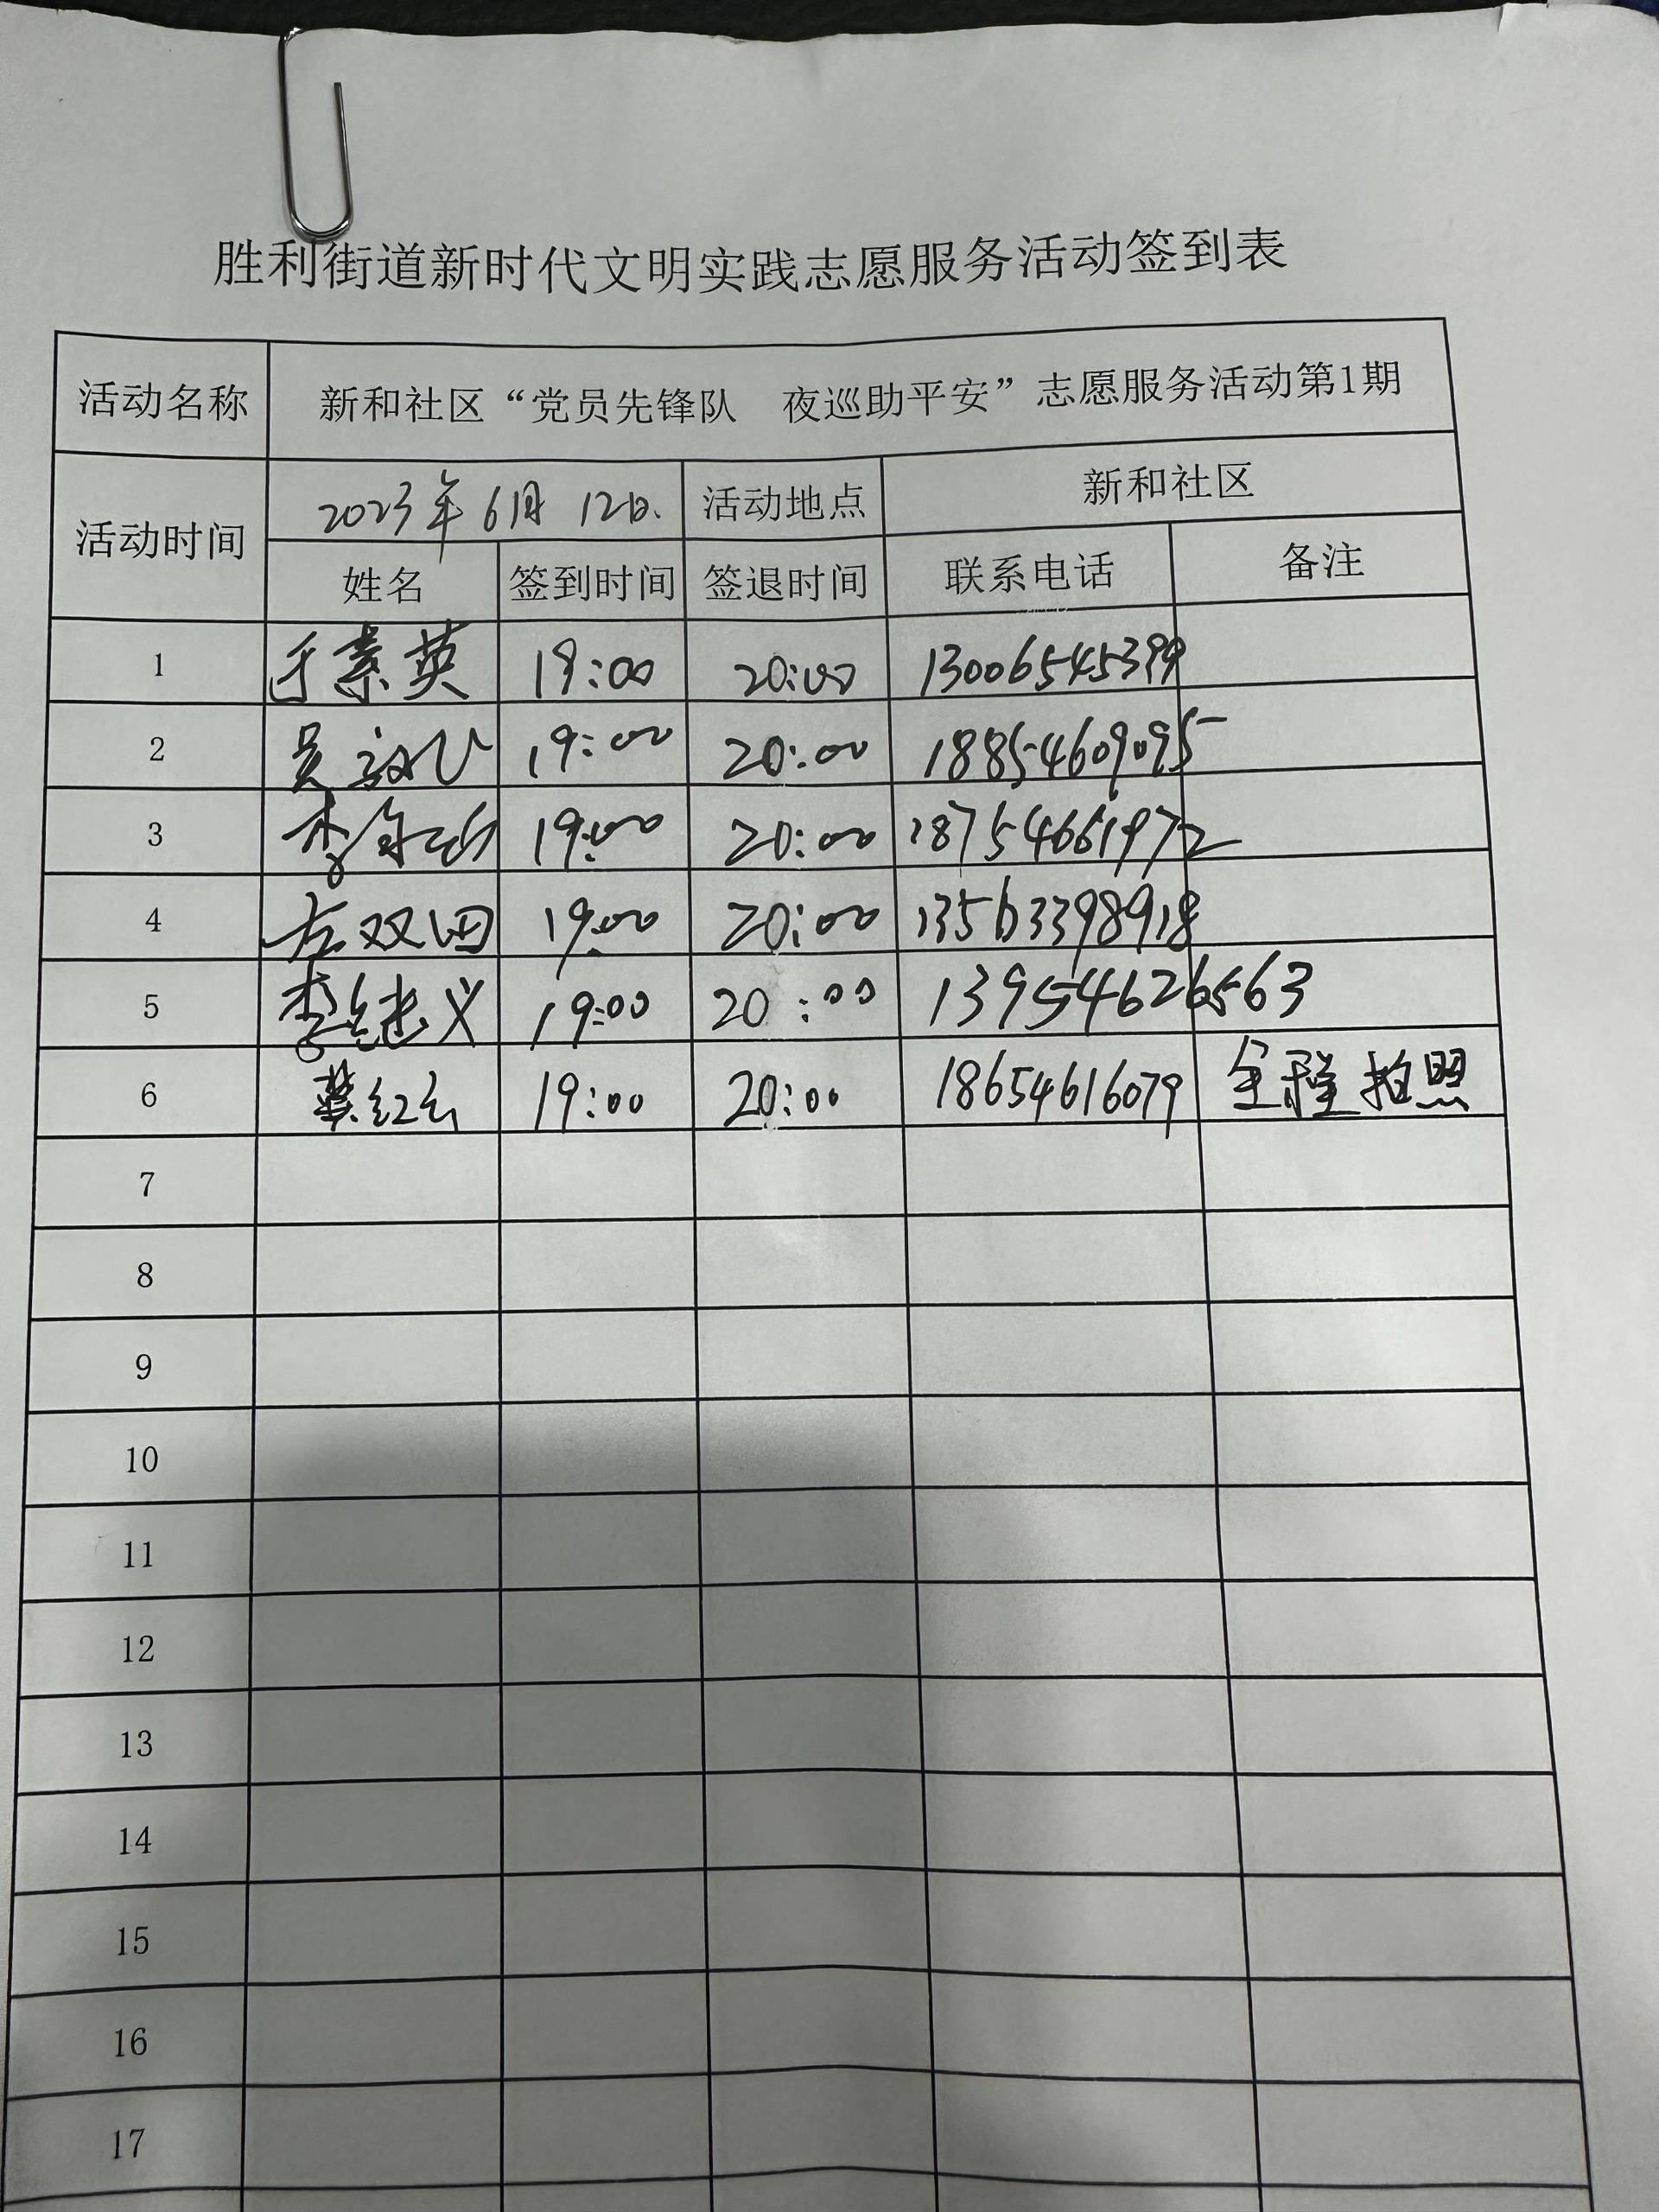 胜利街道新时代文明实践志愿服务活动签到表
活动名称 新和社区“党员先锋队 夜巡助平安”志愿服务活动第1期
活动时间 2023年6月12日. 活动地点 新和社区
姓名 签到时间 签退时间 联系电话 备注
1 于素英 19:00 20:00 13006545399
2 吴 19:00 20:00 18854609095
3 李 19:00 20:00 18754661972
4 左双田 19:00 20:00 13563398918
5 李继义 19:00 20:00 13954626563
6 綦红云 19:00 20:00 18654616079 全程拍照
7
8
9
10
11
12
13
14
15
16
17